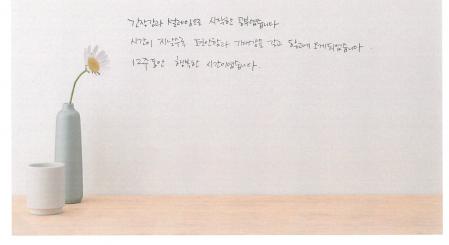 긴장감과 설레임으로 시작한 공부였습니다
시간이 지날수록 편안함과 기대감을 갖고 학교에 오게되었습니다.
12주동안 행복한 시간이였습니다.